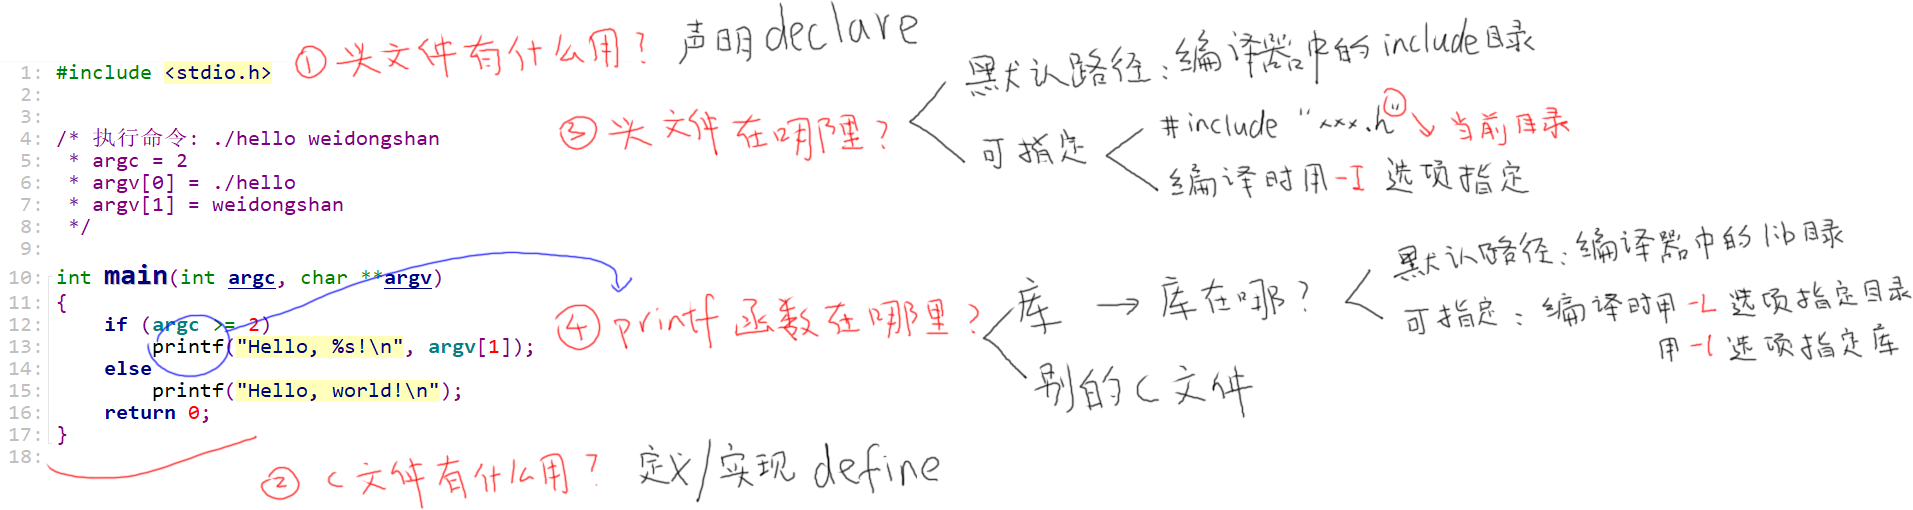 ①头文件有什么用? 声明declare
1: #include <stdio.h>
2:
3:
4: /* 执行命令: ./hello weidongshan
5:  * argc = 2
6:  * argv[0] = ./hello
7:  * argv[1] = weidongshan
8:  */
9:
10: int main(int argc, char **argv)
11: {
12:     if (argc >= 2)
13:         printf("Hello, %s!\n", argv[1]);
14:     else
15:         printf("Hello, world!\n");
16:     return 0;
17: }
18:
② C文件有什么用? 定义/实现 define
③ 头文件在哪里?
默认路径:编译器中的include目录
可指定
#include "xxx.h" 当前目录
编译时用-I 选项指定
④ printf函数在哪里?
库 → 库在哪?
默认路径:编译器中的lib目录
可指定: 编译时用 -L 选项指定目录
用 -l 选项指定库
别的C文件